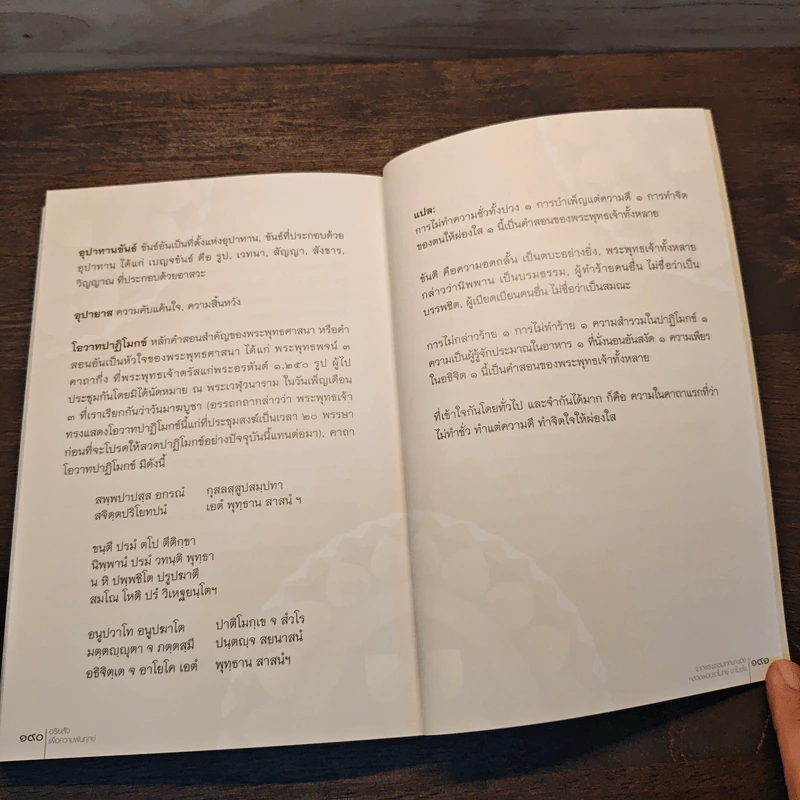 อุปาทานขันธ์ ขันธ์อันเป็นที่ตั้งแห่งอุปาทาน, ขันธ์ที่ประกอบด้วย
อุปาทาน ได้แก่ เบญจขันธ์ คือ รูป, เวทนา, สัญญา, สังขาร,
วิญญาณ ที่ประกอบด้วยอาสวะ
อุปายาส ความคับแค้นใจ, ความสิ้นหวัง
โอวาทปาฏิโมกข์ หลักคำสอนสำคัญของพระพุทธศาสนา หรือคำ
สอนอันเป็นหัวใจของพระพุทธศาสนา ได้แก่ พระพุทธพจน์ ๓
คาถากึ่ง ที่พระพุทธเจ้าตรัสแก่พระอรหันต์ ๑,๒๕๐ รูป ผู้ไป
ประชุมกันโดยมิได้นัดหมาย ณ พระเวฬุวนาราม ในวันเพ็ญเดือน
๓ ที่เราเรียกกันว่าวันมาฆบูชา (อรรถกถากล่าวว่า พระพุทธเจ้า
ทรงแสดงโอวาทปาฏิโมกข์นี้แก่ที่ประชุมสงฆ์เป็นเวลา ๒๐ พรรษา
ก่อนที่จะโปรดให้สวดปาฏิโมกข์อย่างปัจจุบันนี้แทนต่อมา), คาถา
โอวาทปาฏิโมกข์ มีดังนี้
สพฺพปาปสฺส อกรณํ กุสลสฺสูปสมฺปทา
สจิตฺตปริโยทปนํ เอตํ พุทฺธาน สาสนํ ฯ
ขนฺตี ปรมํ ตโป ตีติกฺขา
นิพฺพานํ ปรมํ วทนฺติ พุทฺธา
น หิ ปพฺพชิโต ปรูปฆาตี
สมโณ โหติ ปรํ วิเหฐยนฺโตฯ
อนูปวาโท อนูปฆาโต ปาติโมกฺเข จ สํวโร
มตฺตญฺญุตา จ ภตฺตสฺมึ ปนฺตญฺจ สยนาสนํ
อธิจิตฺเต จ อาโยโค เอตํ พุทฺธาน สาสนํฯ
๑๙๐ อริยสัจ
เพื่อความพ้นทุกข์
แปล:
การไม่ทำความชั่วทั้งปวง ๑ การบำเพ็ญแต่ความดี ๑ การทำจิต
ของตนให้ผ่องใส ๑ นี้เป็นคำสอนของพระพุทธเจ้าทั้งหลาย
ขันติ คือความอดกลั้น เป็นตบะอย่างยิ่ง, พระพุทธเจ้าทั้งหลาย
กล่าวว่านิพพาน เป็นบรมธรรม, ผู้ทำร้ายคนอื่น ไม่ชื่อว่าเป็น
บรรพชิต, ผู้เบียดเบียนคนอื่น ไม่ชื่อว่าเป็นสมณะ
การไม่กล่าวร้าย ๑ การไม่ทำร้าย ๑ ความสำรวมในปาฏิโมกข์ ๑
ความเป็นผู้รู้จักประมาณในอาหาร ๑ ที่นั่งนอนอันสงัด ๑ ความเพียร
ในอธิจิต ๑ นี้เป็นคำสอนของพระพุทธเจ้าทั้งหลาย
ที่เข้าใจกันโดยทั่วไป และจำกันได้มาก ก็คือ ความในคาถาแรกที่ว่า
ไม่ทำชั่ว ทำแต่ความดี ทำจิตใจให้ผ่องใส
๑๙๑